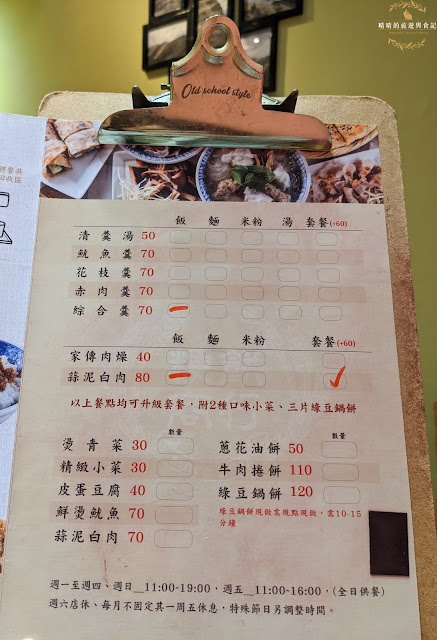 晴晴的旅遊與食記
Old school style
飯 麵 米粉 湯 套餐(+60)
清羹湯 50
魷魚羹 70
花枝羹 70
赤肉羹 70
綜合羹 70
飯 麵 米粉 套餐(+60)
家傳肉燥 40
蒜泥白肉 80
以上餐點均可升級套餐，附2種口味小菜、三片綠豆鍋餅
數量
燙青菜 30
精緻小菜 30
皮蛋豆腐 40
鮮燙魷魚 70
蒜泥白肉 70
數量
蔥花油餅 50
牛肉捲餅 110
綠豆鍋餅 120
綠豆鍋餅現做需現點現做，需10-15
分鐘
週一至週四、週日__11:00-19:00，週五__11:00-16:00，(全日供餐)
週六店休、每月不固定其一周五休息，特殊節日另調整時間。